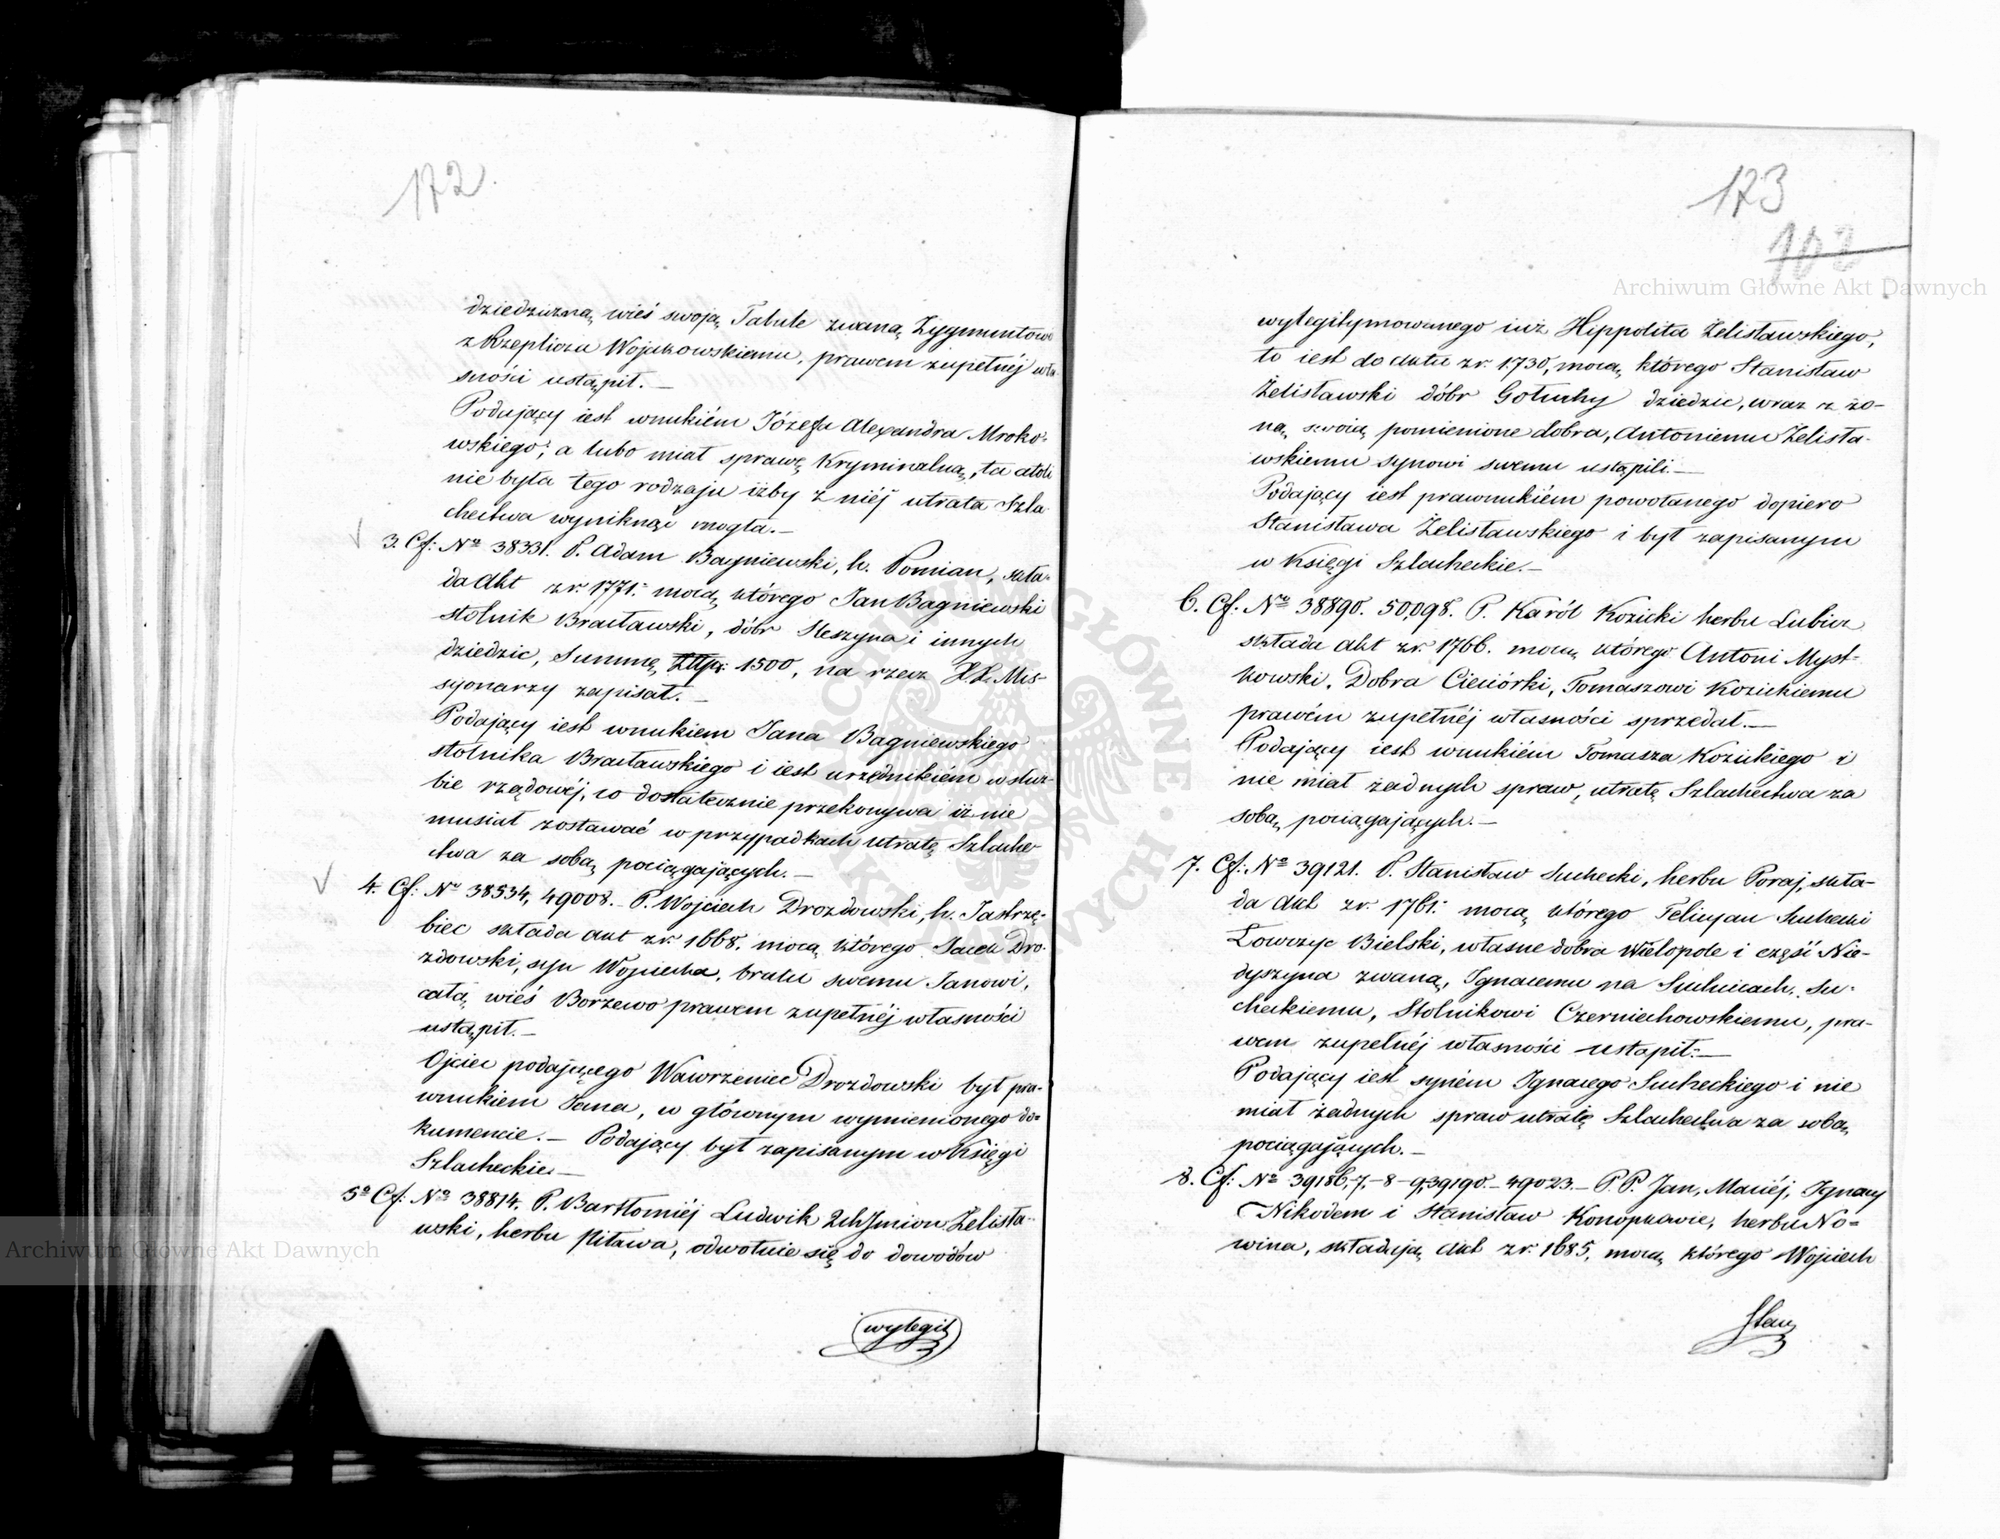 172
dziedziczną wieś swoją Tabule zwaną Zygmuntowi
z Rzeplicza Wojakowskiemu, prawem zupełnéj wła
sności ustąpił.—
Podający iest wnukiém Józefa Alexandra Mroko-
wskiego; a lubo miał sprawę kryminalną, ta atoli
nie była tego rodzaju iżby z niéj utrata Szla
chectwa wyniknąć mogła.—
3. Cf: Nº 38331. P. Adam Bagniewski, h. Pomian, skła-
da Akt z r. 1771. mocą którego Jan Bagniewski
stolnik Bracławski, dóbr Steszyna i innych
dziedzic, Summę Złtpr. 1500, na rzecz X.X. Mis-
syonarzy zapisał.—
Podający iest wnukiem Jana Bagniewskiego
stolnika Bracławskiego i iest urzędnikiém w służ-
bie rządowéj, co dostatecznie przekonywa iż nie
musiał zostawać w przypadkach utratę Szlache-
ctwa za sobą pociągających.—
4. Cf: Nº 38534, 49008.— P. Wojciech Drozdowski, h. Jastrzę-
biec składa akt z r. 1668. mocą którego Jacek Dro-
zdowski, syn Wojciecha, bratu swemu Janowi,
całą wieś Borzewo prawem zupełnéj własności
ustąpił.—
Ojciec podającego Wawrzeniec Drozdowski był pra-
wnukiem Jana, w głównym wymienionego do-
kumencie.— Podający był zapisanym w Księgi
Szlacheckie.—
5º Cf: Nº 38814. P. Bartłomiéj Ludwik 2ch Jmion Żelisła-
wski, herbu Pilawa, odwołuie się do dowodów
wylegit
173
102
wylegitymowanego iuż Hippolita Żelisławskiego,
to iest do aktu z r. 1730, mocą którego Stanisław
Żelisławski dóbr Gołuchy dziedzic, wraz z żo-
ną swoią pomienione dobra, Antoniemu Żelisła-
wskiemu synowi swemu ustąpili.—
Podający iest prawnukiém powołanego dopiero
Stanisława Żelisławskiego i był zapisanym
w Księgi Szlacheckie.—
6. Cf: Nº 38890. 50,098. P. Karól Kozicki herbu Lubicz
składa akt z r. 1766. mocą którego Antoni Myst-
kowski, Dobra Cieciórki, Tomaszowi Kozickiemu
prawém zupełnéj własności sprzedał.—
Podający iest wnukiém Tomasza Kozickiego i
nie miał żadnych spraw, utratę Szlachectwa za
sobą pociągających.—
7. Cf: Nº 39121. P. Stanisław Suchecki, herbu Poraj, skła-
da akt z r. 1761. mocą którego Felicyan Suchecki
Łowczyc Bielski, własne dobra Wielopole i część Nie-
dyszyna zwaną, Ignacemu na Suchcicach Su-
checkiemu, Stolnikowi Czerniechowskiemu, pra-
wem zupełnéj własności ustąpił:—
Podający iest syném Ignacego Sucheckiego i nie
miał żadnych spraw utratę Szlachectwa za sobą
pociągających.—
8. Cf: Nº 39186,-7,-8-9,39190.—49023.— P.P. Jan, Maciéj, Ignacy
Nikodem i Stanisław Konopkowie, herbu No-
wina, składają akt z r. 1685, mocą którego Wojciech
Archiwum Główne Akt Dawnych
Archiwum Główne Akt Dawnych